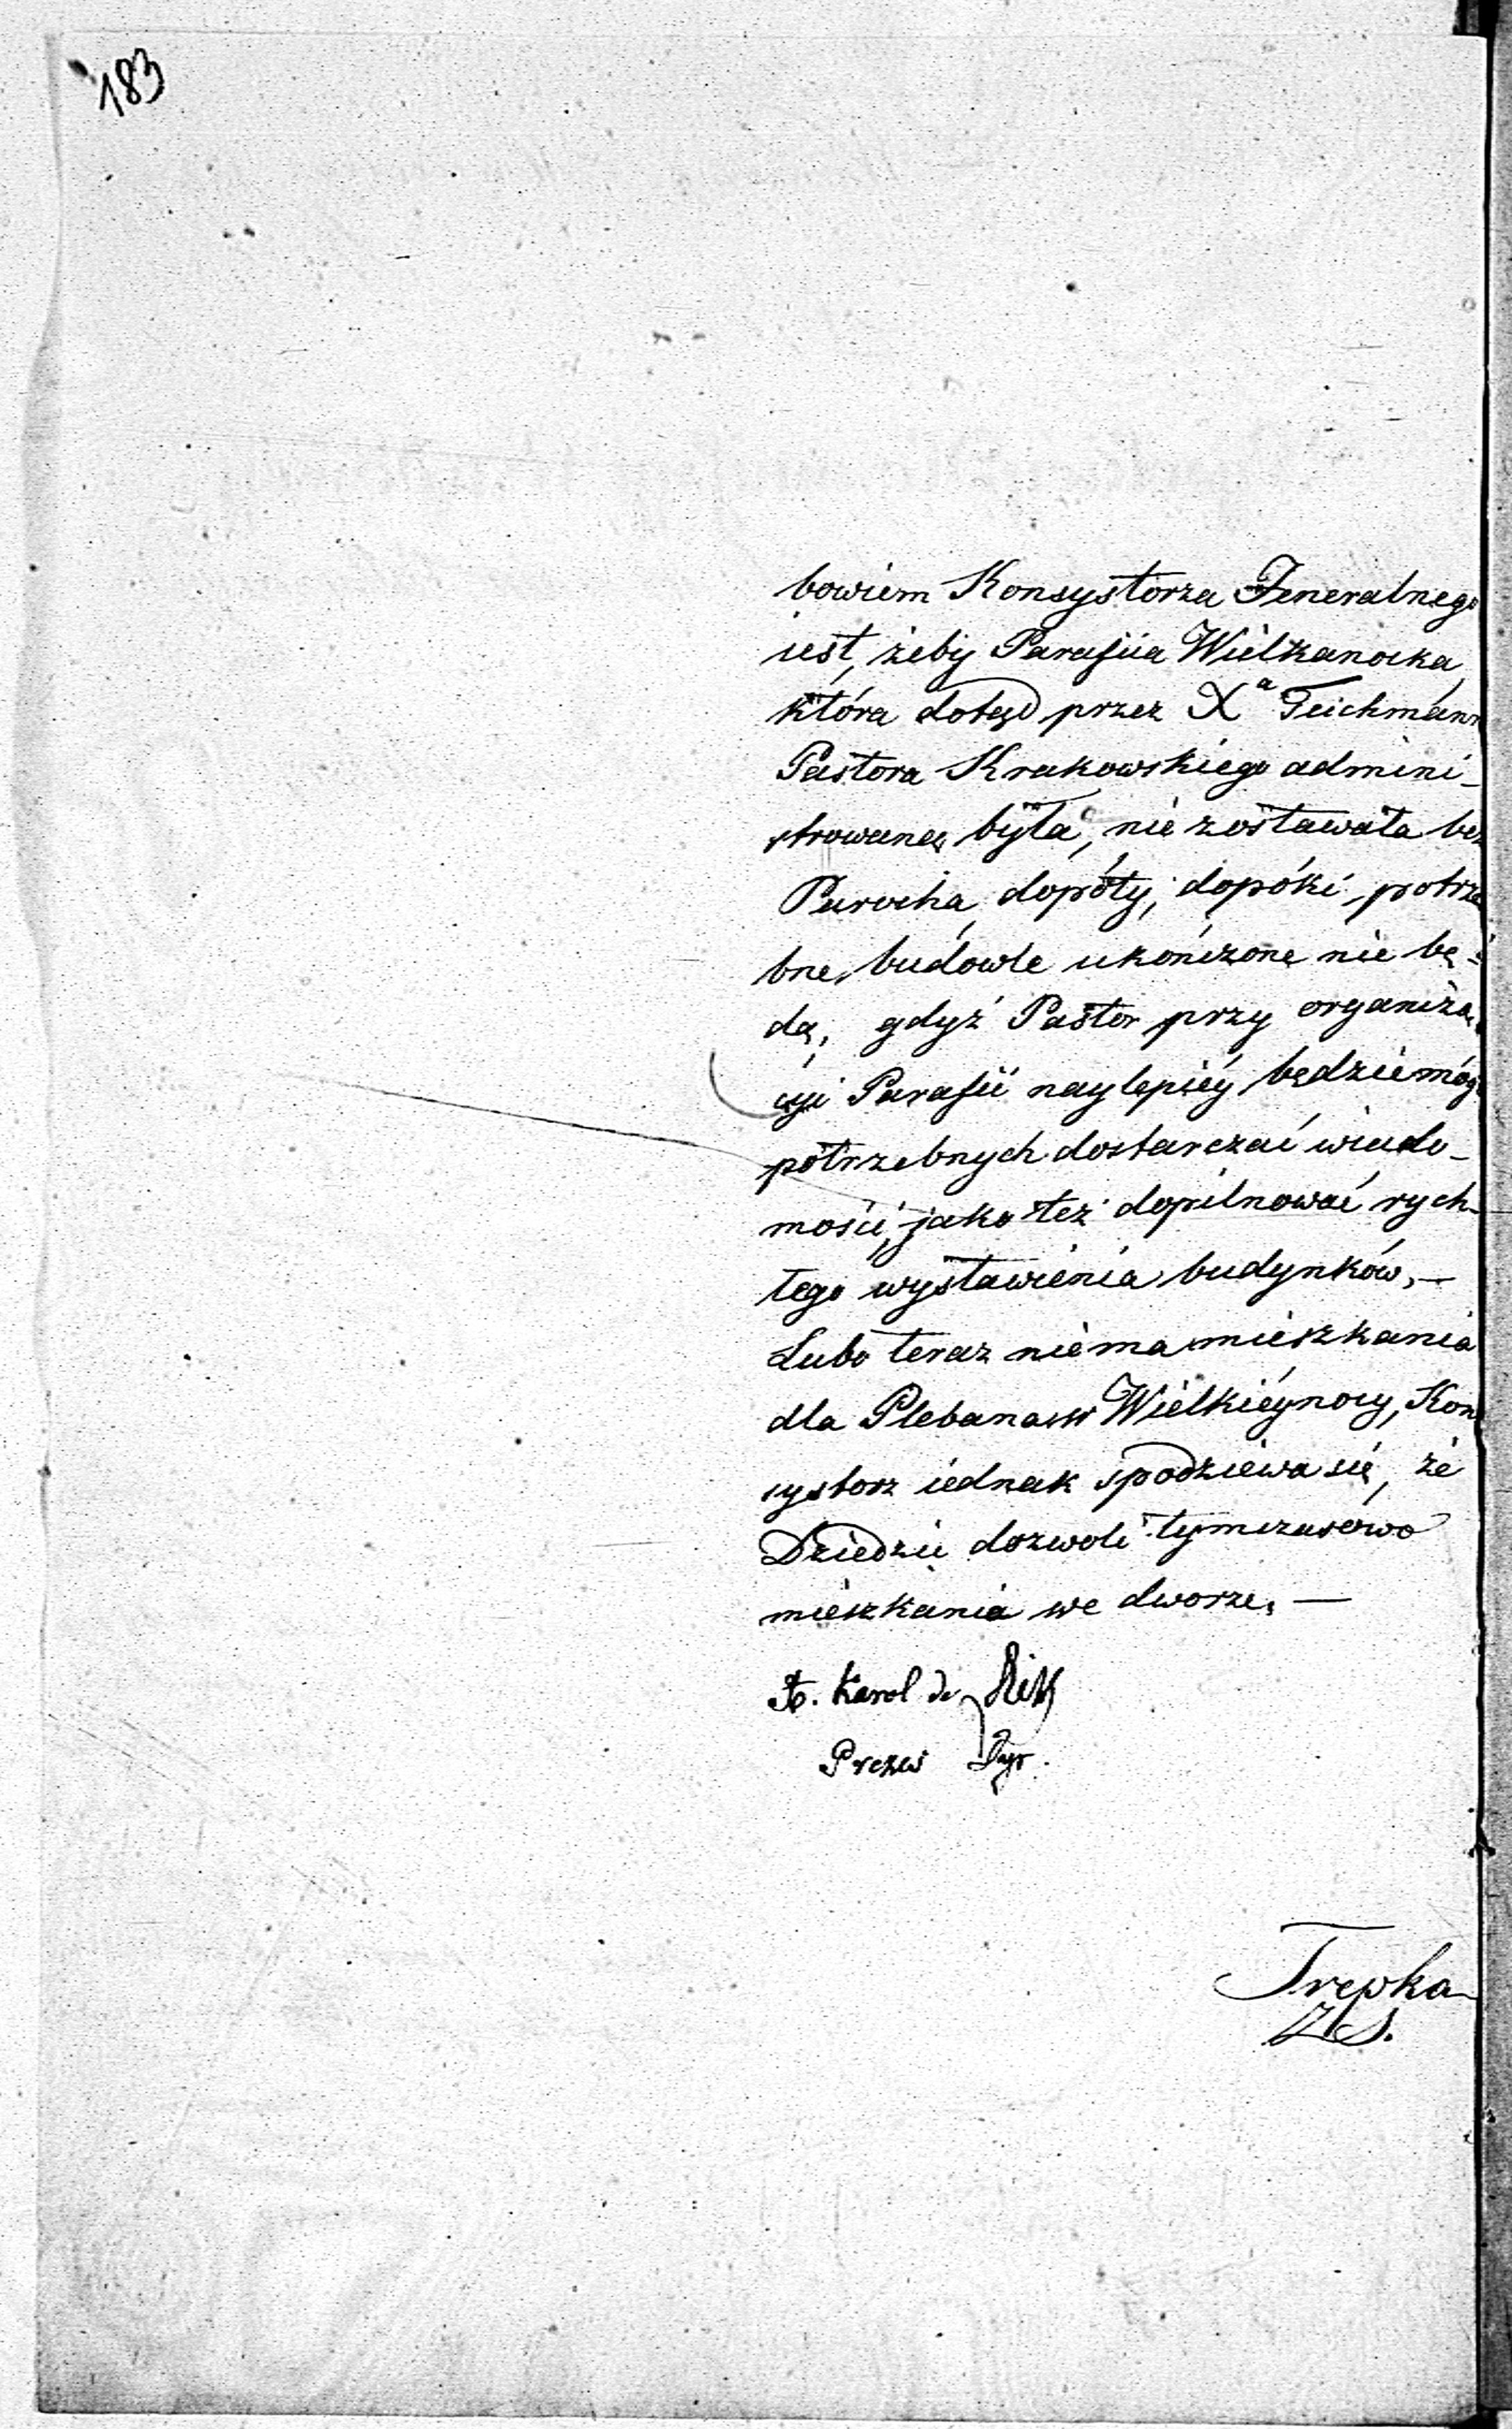 183
bowiem Konsystorza Jeneralnego
iest, żeby Parafiia Wielkanocka,
która dotąd przez Xᵃ Teichmann
Pastora Krakowskiego admini-
strowaną była, nie zostawała bez
Parocha dopóty, dopóki potrze
bne budowle ukończone nie bę-
dą, gdyż Pastor przy organiza
cyi Parafii naylepiéy będzie mógł
potrzebnych dostarczać wiado-
mości, jako też dopilnować rych-
łego wystawienia budynków, —
Lubo teraz niema mieszkania
dla Plebana w Wielkiéynocy, Kon
systorz iednak spodziewa się, że
Dziedzic dozwoli tymczasowo
mieszkania we dworze, —
Karol de
Prezes Dyr.
Trepka
ZS.